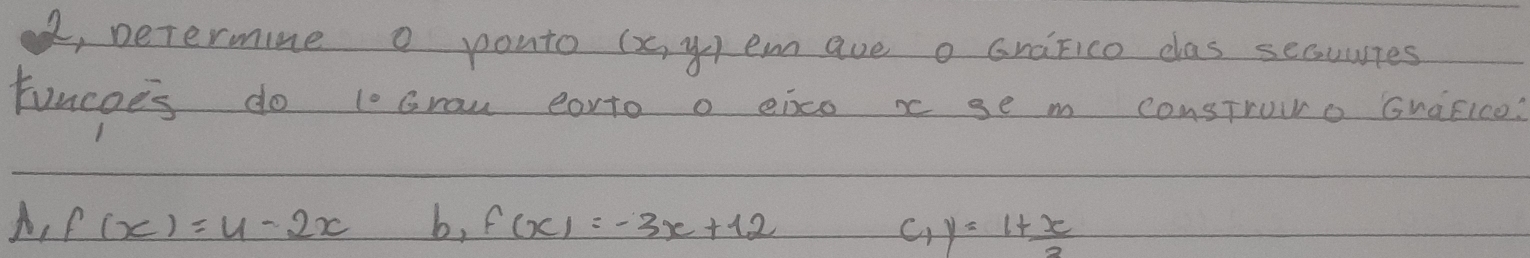 2, Determine o ponto (x, y) em que o Gráfico das seguintes
Funções do 1º Grau corta o eixo x sem construir o Gráfico:
A, f(x) = 4 - 2x b, f(x) = -3x + 12 c, y = 1 + x/